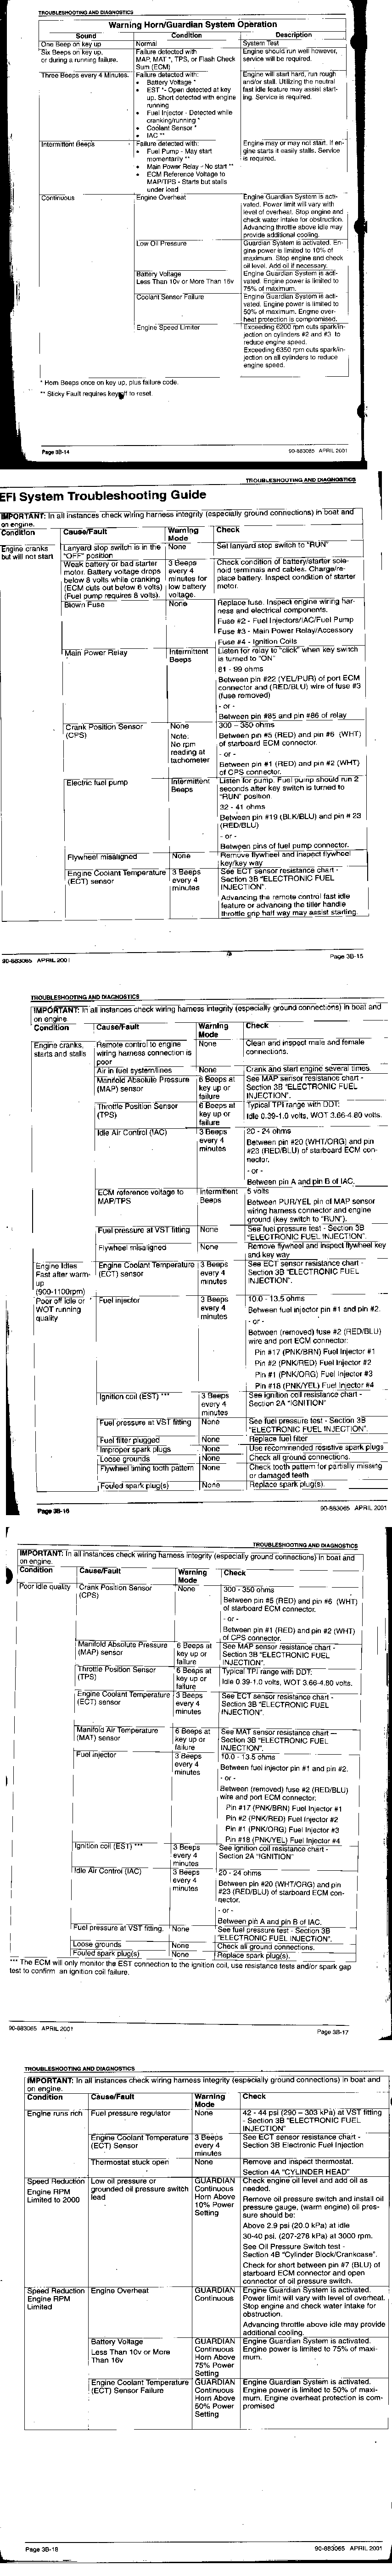 TROUBLESHOOTING AND DIAGNOSTICS
Warning Horn/Guardian System Operation
Sound Condition Description
One Beep on key up Normal System Test
Six Beeps on key up, or during a running failure. Failure detected with MAP, MAT *, TPS, or Flash Check Sum (ECM) Engine should run well however, service will be required.
Three Beeps every 4 Minutes. Failure detected with:
• Battery Voltage *
• EST *- Open detected at key up. Short detected with engine running
• Fuel Injector - Detected while cranking/running *
• Coolant Sensor *
• IAC **
Engine will start hard, run rough and/or stall. Utilizing the neutral fast idle feature may assist starting. Service is required.
Intermittent Beeps Failure detected with:
• Fuel Pump - May start momentarily **
• Main Power Relay - No start **
• ECM Reference Voltage to MAP/TPS - Starts but stalls under load
Engine may or may not start. If engine starts it easily stalls. Service is required.
Continuous Engine Overheat Engine Guardian System is activated. Power limit will vary with level of overheat. Stop engine and check water intake for obstruction. Advancing throttle above idle may provide additional cooling.
Low Oil Pressure Guardian System is activated. Engine power is limited to 10% of maximum. Stop engine and check oil level. Add oil if necessary.
Battery Voltage Less Than 10v or More Than 16v Engine Guardian System is activated. Engine power is limited to 75% of maximum.
Coolant Sensor Failure Engine Guardian System is activated. Engine power is limited to 50% of maximum. Engine overheat protection is compromised.
Engine Speed Limiter Exceeding 6200 rpm cuts spark/injection on cylinders #2 and #3 to reduce engine speed.
Exceeding 6350 rpm cuts spark/injection on all cylinders to reduce engine speed.
* Horn Beeps once on key up, plus failure code.
** Sticky Fault requires key off to reset.
Page 3B-14 90-883065 APRIL 2001
TROUBLESHOOTING AND DIAGNOSTICS
EFI System Troubleshooting Guide
IMPORTANT: In all instances check wiring harness integrity (especially ground connections) in boat and on engine.
Condition Cause/Fault Warning Mode Check
Engine cranks but will not start Lanyard stop switch is in the "OFF" position None Set lanyard stop switch to "RUN"
Weak battery or bad starter motor. Battery voltage drops below 8 volts while cranking (ECM cuts out below 6 volts) (Fuel pump requires 8 volts). 3 Beeps every 4 minutes for low battery voltage. Check condition of battery/starter solenoid terminals and cables. Charge/replace battery. Inspect condition of starter motor.
Blown Fuse None Replace fuse. Inspect engine wiring harness and electrical components.
Fuse #2 - Fuel Injectors/IAC/Fuel Pump
Fuse #3 - Main Power Relay/Accessory
Fuse #4 - Ignition Coils
Main Power Relay Intermittent Beeps Listen for relay to "click" when key switch is turned to "ON"
81 - 99 ohms
Between pin #22 (YEL/PUR) of port ECM connector and (RED/BLU) wire of fuse #3 (fuse removed)
- or -
Between pin #85 and pin #86 of relay
Crank Position Sensor (CPS) None Note: No rpm reading at tachometer 300 - 350 ohms
Between pin #5 (RED) and pin #6 (WHT) of starboard ECM connector.
- or -
Between pin #1 (RED) and pin #2 (WHT) of CPS connector.
Electric fuel pump Intermittent Beeps Listen for pump. Fuel pump should run 2 seconds after key switch is turned to "RUN" position.
32 - 41 ohms
Between pin #19 (BLK/BLU) and pin # 23 (RED/BLU)
- or -
Between pins of fuel pump connector.
Flywheel misaligned None Remove flywheel and inspect flywheel key/key way
Engine Coolant Temperature (ECT) sensor 3 Beeps every 4 minutes See ECT sensor resistance chart - Section 3B "ELECTRONIC FUEL INJECTION".
Advancing the remote control fast idle feature or advancing the tiller handle throttle grip half way may assist starting.
90-883065 APRIL 2001 Page 3B-15
TROUBLESHOOTING AND DIAGNOSTICS
IMPORTANT: In all instances check wiring harness integrity (especially ground connections) in boat and on engine.
Condition Cause/Fault Warning Mode Check
Engine cranks, starts and stalls Remote control to engine wiring harness connection is poor None Clean and inspect male and female connections.
Air in fuel system/lines None Crank and start engine several times.
Manifold Absolute Pressure (MAP) sensor 6 Beeps at key up or failure See MAP sensor resistance chart - Section 3B "ELECTRONIC FUEL INJECTION".
Throttle Position Sensor (TPS) 6 Beeps at key up or failure Typical TPI range with DDT:
Idle 0.39-1.0 volts, WOT 3.66-4.80 volts.
Idle Air Control (IAC) 3 Beeps every 4 minutes 20 - 24 ohms
Between pin #20 (WHT/ORG) and pin #23 (RED/BLU) of starboard ECM connector.
- or -
Between pin A and pin B of IAC.
ECM reference voltage to MAP/TPS Intermittent Beeps 5 volts
Between PUR/YEL pin of MAP sensor wiring harness connector and engine ground (key switch to "RUN").
Fuel pressure at VST fitting None See fuel pressure test - Section 3B "ELECTRONIC FUEL INJECTION".
Flywheel misaligned None Remove flywheel and inspect flywheel key and key way
Engine Idles Fast after warm-up (900-1100rpm) Engine Coolant Temperature (ECT) sensor 3 Beeps every 4 minutes See ECT sensor resistance chart - Section 3B "ELECTRONIC FUEL INJECTION".
Poor off idle or WOT running quality Fuel injector 3 Beeps every 4 minutes 10.0 - 13.5 ohms
Between fuel injector pin #1 and pin #2.
- or -
Between (removed) fuse #2 (RED/BLU) wire and port ECM connector:
Pin #17 (PNK/BRN) Fuel Injector #1
Pin #2 (PNK/RED) Fuel Injector #2
Pin #1 (PNK/ORG) Fuel Injector #3
Pin #18 (PNK/YEL) Fuel Injector #4
Ignition coil (EST) *** 3 Beeps every 4 minutes See ignition coil resistance chart - Section 2A "IGNITION"
Fuel pressure at VST fitting None See fuel pressure test - Section 3B "ELECTRONIC FUEL INJECTION".
Fuel filter plugged None Replace fuel filter
Improper spark plugs None Use recommended resistive spark plugs
Loose grounds None Check all ground connections.
Flywheel timing tooth pattern None Check tooth pattern for partially missing or damaged teeth
Fouled spark plug(s) None Replace spark plug(s).
Page 3B-16 90-883065 APRIL 2001
TROUBLESHOOTING AND DIAGNOSTICS
IMPORTANT: In all instances check wiring harness integrity (especially ground connections) in boat and on engine.
Condition Cause/Fault Warning Mode Check
Poor idle quality Crank Position Sensor (CPS) None 300 - 350 ohms
Between pin #5 (RED) and pin #6 (WHT) of starboard ECM connector.
- or -
Between pin #1 (RED) and pin #2 (WHT) of CPS connector.
Manifold Absolute Pressure (MAP) sensor 6 Beeps at key up or failure See MAP sensor resistance chart - Section 3B "ELECTRONIC FUEL INJECTION".
Throttle Position Sensor (TPS) 6 Beeps at key up or failure Typical TPI range with DDT:
Idle 0.39-1.0 volts, WOT 3.66-4.80 volts.
Engine Coolant Temperature (ECT) sensor 3 Beeps every 4 minutes See ECT sensor resistance chart - Section 3B "ELECTRONIC FUEL INJECTION".
Manifold Air Temperature (MAT) sensor 6 Beeps at key up or failure See MAT sensor resistance chart — Section 3B "ELECTRONIC FUEL INJECTION".
Fuel injector 3 Beeps every 4 minutes 10.0 - 13.5 ohms
Between fuel injector pin #1 and pin #2.
- or -
Between (removed) fuse #2 (RED/BLU) wire and port ECM connector:
Pin #17 (PNK/BRN) Fuel Injector #1
Pin #2 (PNK/RED) Fuel Injector #2
Pin #1 (PNK/ORG) Fuel Injector #3
Pin #18 (PNK/YEL) Fuel Injector #4
Ignition coil (EST) *** 3 Beeps every 4 minutes See ignition coil resistance chart - Section 2A "IGNITION"
Idle Air Control (IAC) 3 Beeps every 4 minutes 20 - 24 ohms
Between pin #20 (WHT/ORG) and pin #23 (RED/BLU) of starboard ECM connector.
- or -
Between pin A and pin B of IAC.
Fuel pressure at VST fitting. None See fuel pressure test - Section 3B "ELECTRONIC FUEL INJECTION".
Loose grounds None Check all ground connections.
Fouled spark plug(s) None Replace spark plug(s).
*** The ECM will only monitor the EST connection to the ignition coil, use resistance tests and/or spark gap test to confirm an ignition coil failure.
90-883065 APRIL 2001 Page 3B-17
TROUBLESHOOTING AND DIAGNOSTICS
IMPORTANT: In all instances check wiring harness integrity (especially ground connections) in boat and on engine.
Condition Cause/Fault Warning Mode Check
Engine runs rich Fuel pressure regulator None 42 - 44 psi (290 – 303 kPa) at VST fitting - Section 3B "ELECTRONIC FUEL INJECTION"
Engine Coolant Temperature (ECT) Sensor 3 Beeps every 4 minutes See ECT sensor resistance chart - Section 3B Electronic Fuel Injection
Thermostat stuck open None Remove and inspect thermostat.
Section 4A "CYLINDER HEAD"
Speed Reduction Engine RPM Limited to 2000 Low oil pressure or grounded oil pressure switch lead GUARDIAN Continuous Horn Above 10% Power Setting Check engine oil level and add oil as needed.
Remove oil pressure switch and install oil pressure gauge, (warm engine) oil pressure should be:
Above 2.9 psi (20.0 kPa) at idle
30-40 psi. (207-278 kPa) at 3000 rpm.
See Oil Pressure Switch test - Section 4B "Cylinder Block/Crankcase".
Check for short between pin #7 (BLU) of starboard ECM connector and open connector of oil pressure switch.
Speed Reduction Engine RPM Limited Engine Overheat GUARDIAN Continuous Engine Guardian System is activated. Power limit will vary with level of overheat. Stop engine and check water intake for obstruction.
Advancing throttle above idle may provide additional cooling.
Battery Voltage Less Than 10v or More Than 16v GUARDIAN Continuous Horn Above 75% Power Setting Engine Guardian System is activated. Engine power is limited to 75% of maximum.
Engine Coolant Temperature (ECT) Sensor Failure GUARDIAN Continuous Horn Above 50% Power Setting Engine Guardian System is activated. Engine power is limited to 50% of maximum. Engine overheat protection is compromised
Page 3B-18 90-883065 APRIL 2001